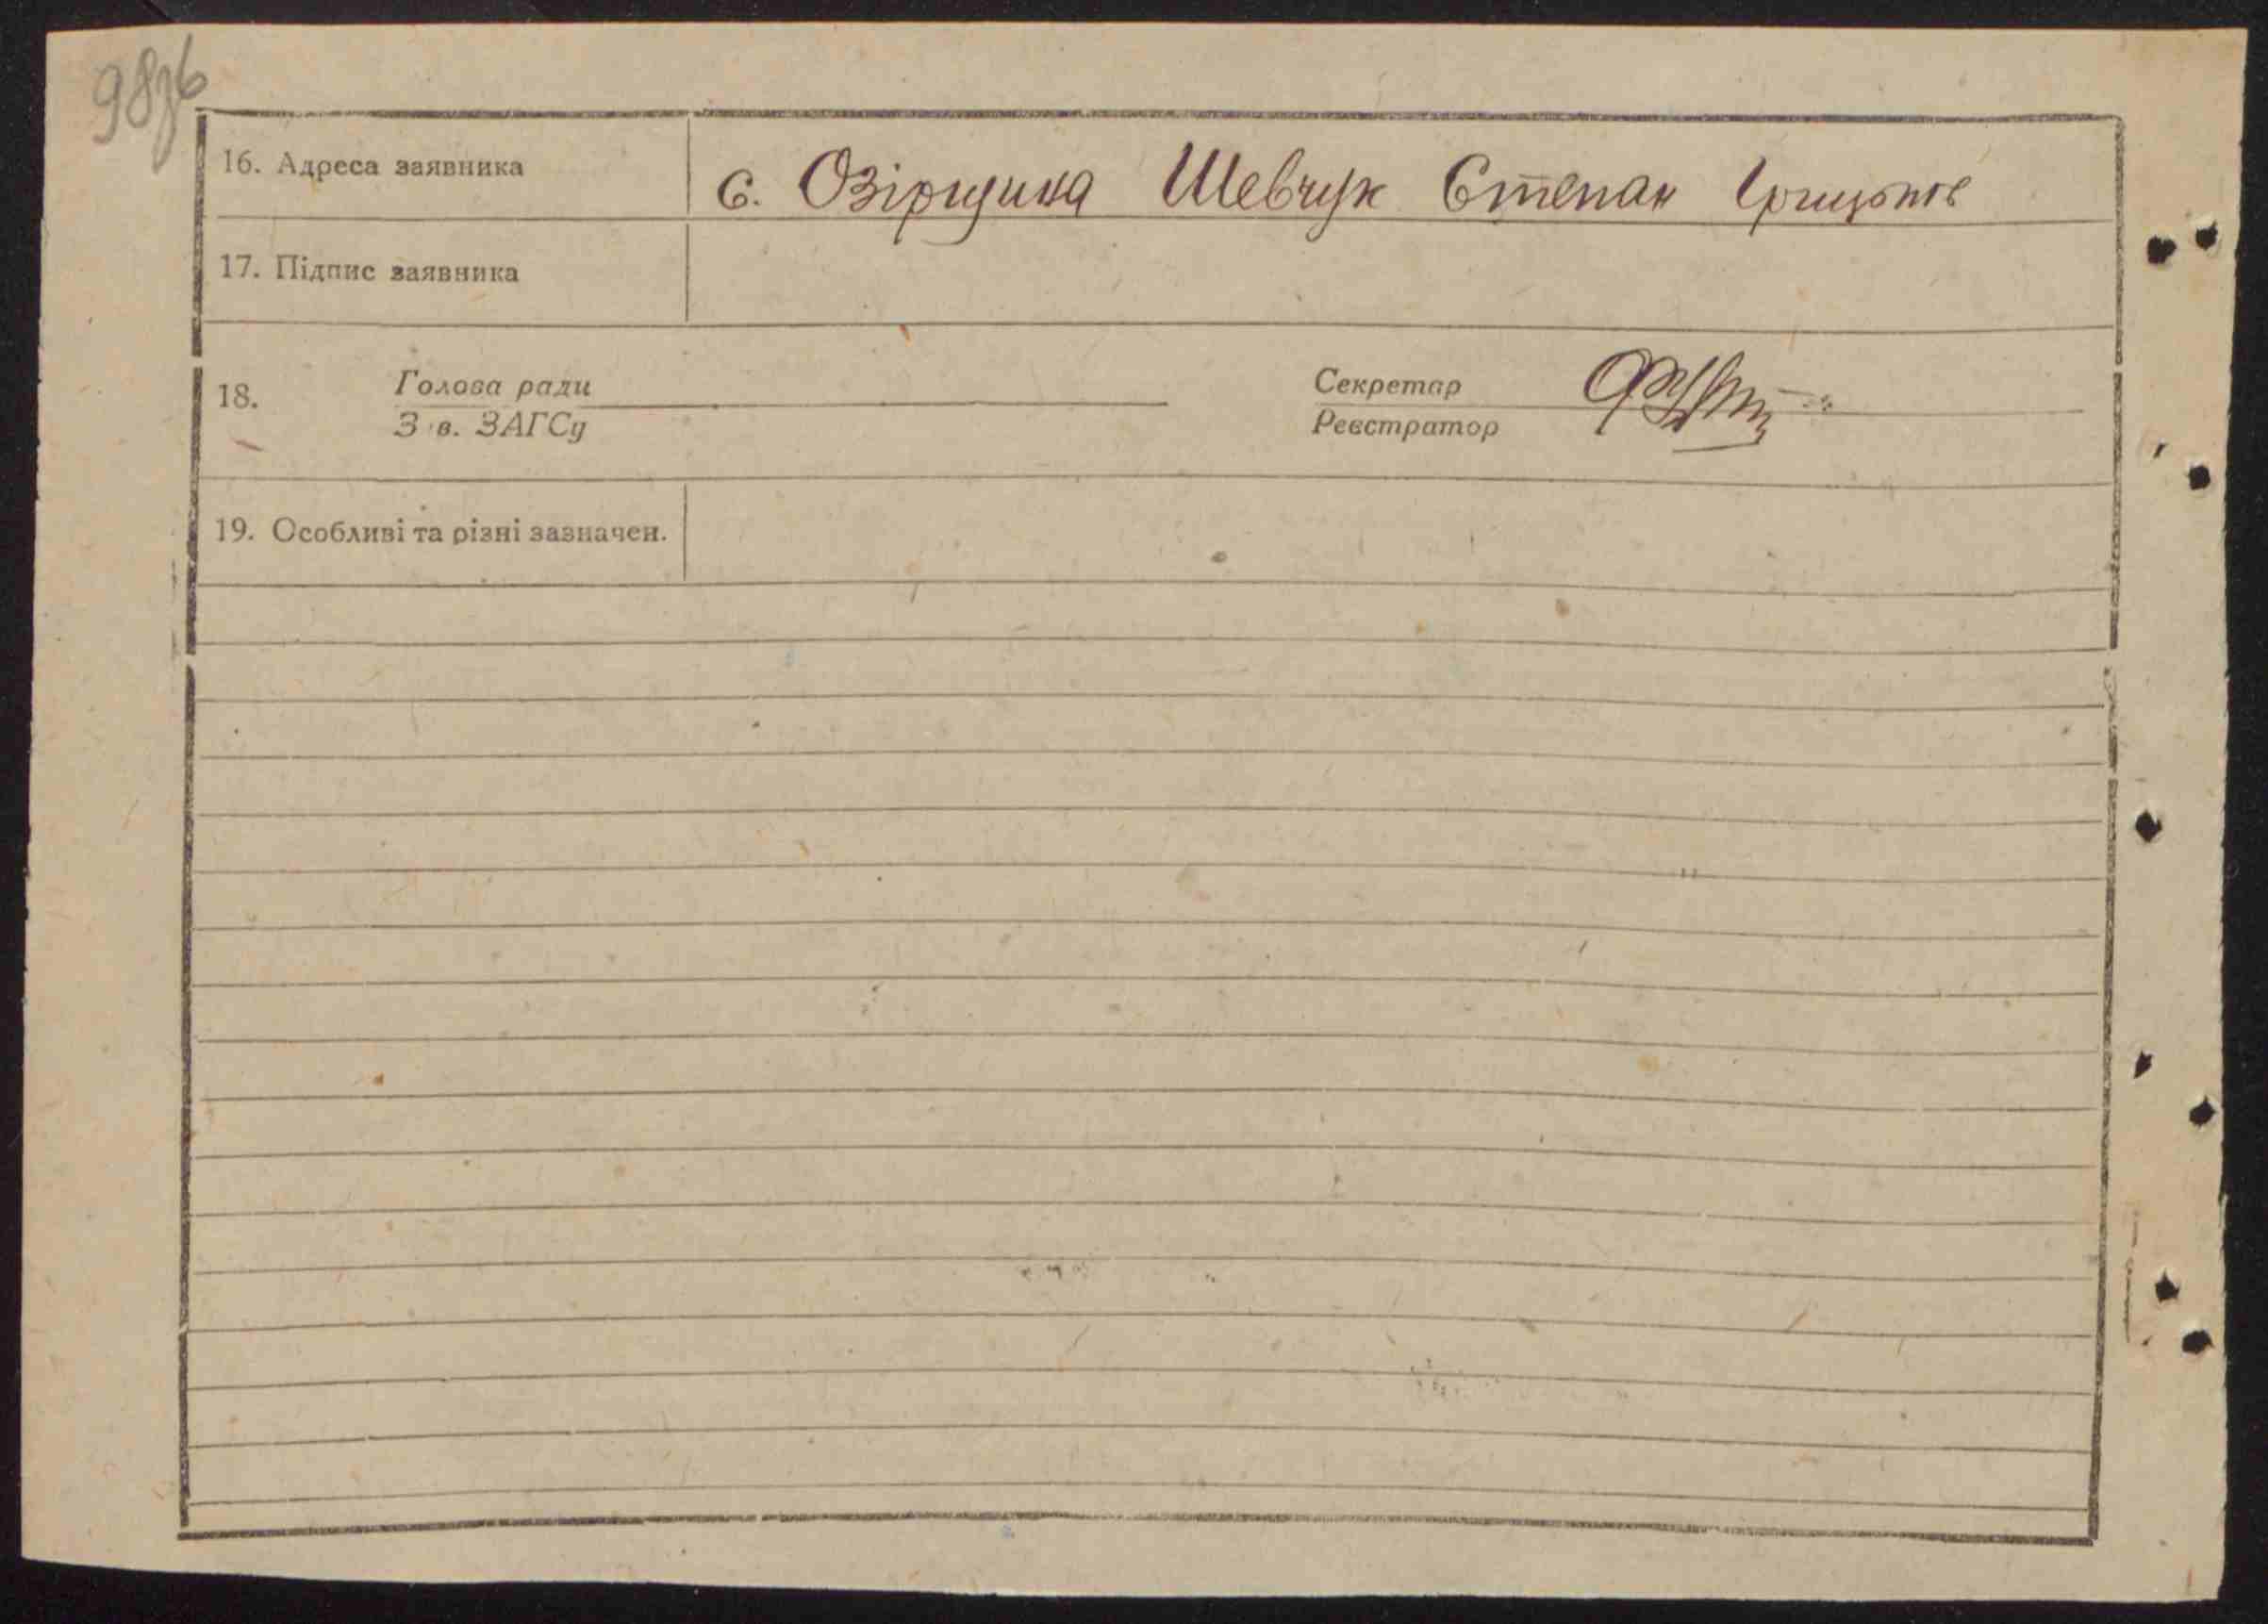 98зв
16. Адреса заявника
с. Озірщина Шевчук Степан Грицьків
17. Підпис заявника
18. Голова ради
З в. ЗАГСу
Секретар
Реєстратор
19. Особливі та різні зазначен.